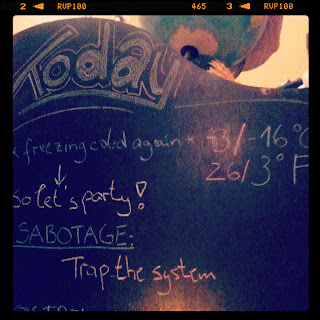 2 RVP100 465 3 RVP100
Today
* freezing cold again * -3/-16°C
26/3°F
So let's party!
SABOTAGE:
Trap the system